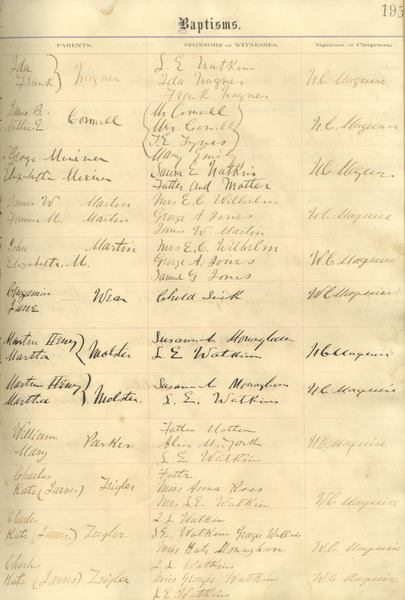 195
Baptisms.
PARENTS. SPONSORS OR WITNESSES. Signature of Clergyman.
Ida L. E. Watkins
Frank } Wagner Ida Wagner W.C. Maguire
Frank Wagner
James B. Mr Connell
Nellie E Connell Mrs Connell W.C. Maguire
Mary
George
Elizabeth Sallie E Watkins W.C. Maguire
Father and Mother
James W. Martin Mrs E. C. Wilhelm
Fannie M. Martin George A Jones W.C. Maguire
James W Martin
John Martin Mrs E. C. Wilhelm
Elizabeth M. George A. Jones W.C. Maguire
Samuel G Jones
Benjamin Wean Child Sick W.C. Maguire
Jane
Martin Henry Susannah Monaghan
Martha } Molster L E Watkins W.C. Maguire
Martin Henry Susannah Monaghan
Martha } Molster. L. E. Watkins W.C. Maguire
William Father Mother
Mary Parker Alice McYork W.C. Maguire
L E Watkins
Charles Father
Kate (Jarvis) Zeigler Miss Anna Ross
Mrs L E Watkins W.C. Maguire
Charles L L Watkins
Kate (Jarvis) Zeigler L E. Watkins George Watkins
Miss Kate Monaghan W.C. Maguire
Charles L L. Watkins
Kate (Jarvis) Zeigler Miss George Watkins W.C. Maguire
L E Watkins